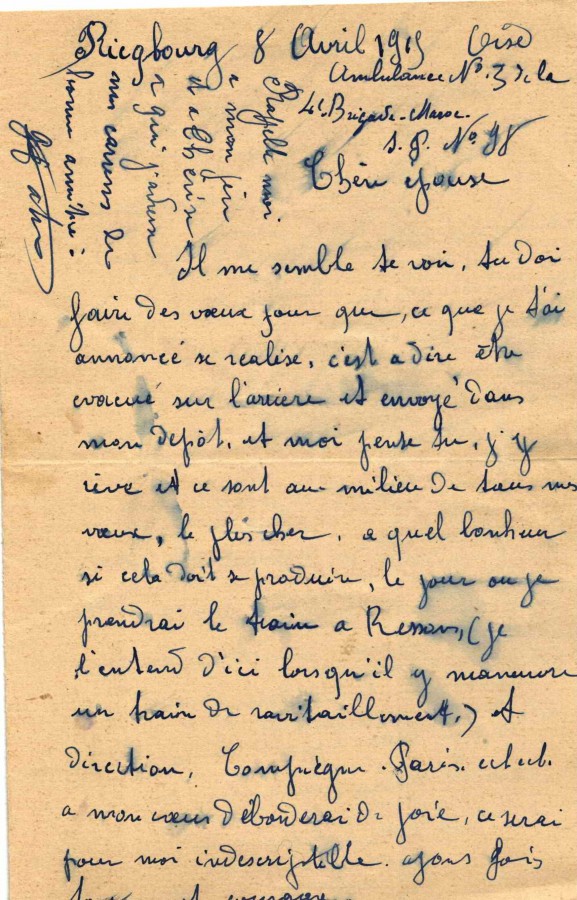 Ricgbourg 8 Avril 1915 Oise
Ambulance No. 3 de la
4e Brigade-Maroc.
S. P. No 98
Chère épouse
Il me semble te voir, tu doi
faire des vœux pour que, ce que je t'ai
annoncé se realise, c'est a dire être
evacué sur l'arriere et envoyé dans
mon depôt, et moi pense tu, j'y
rève et ce sont au milieu de tous mes
vœux, le plus cher, a quel bonheur
si cela doit se produire, le jour ou je
prendrai le train a Ressons, (je
l'entend d'ici lorsqu'il y maneuvre
un train de ravitaillement,) et
direction, Compiègne. Paris. ect ect.
a mon cœur déborderai de joie, ce serai
pour moi indescriptible. ayons fois
et courage
Rappelle moi
a mon
et a Thérèse
a qui j'adresse
mes caresses de
bonne amitié: